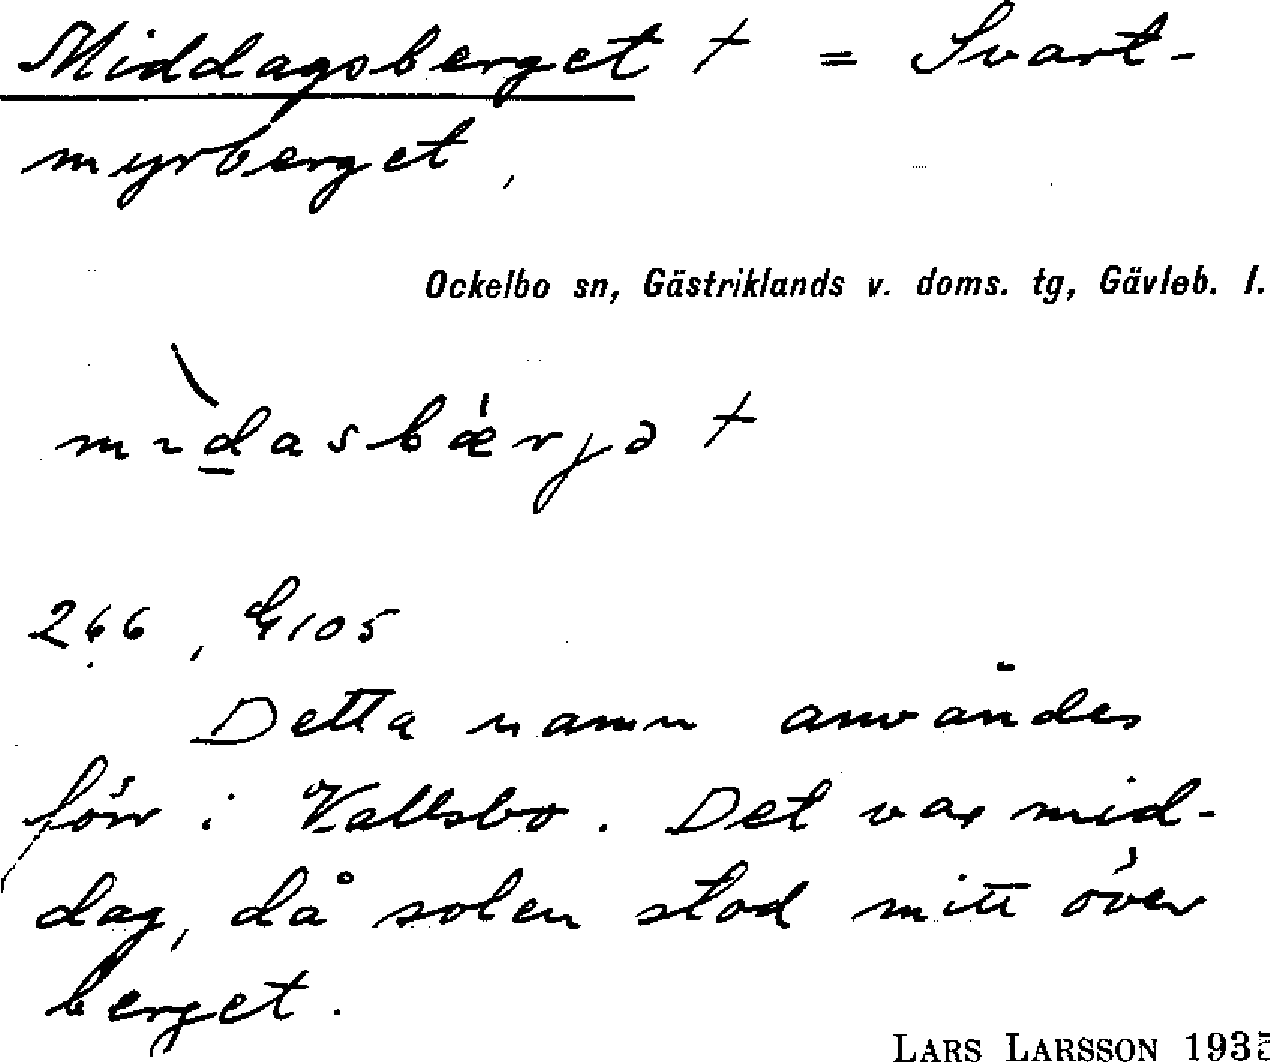 Middagsberget + = Svart-
myrberget,
Ockelbo sn, Gästriklands v. doms. tg, Gävleb. l.
mɩ̀dasbǽrjə +
266, G105
Detta namn användes
förr i Vallsbo. Det var mid-
dag, då solen stod mitt över
berget.
LARS LARSSON 1935